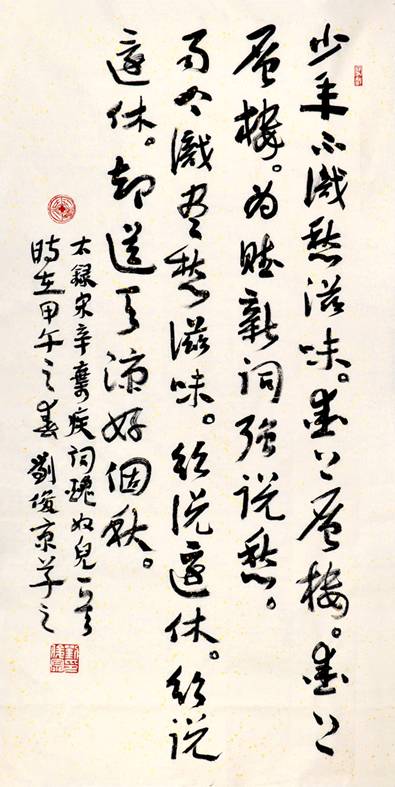 少年不識愁滋味。愛上層樓。愛上
層樓。为賦新詞強說愁。
而今識尽愁滋味。欲說還休。欲說
還休。却道天涼好個秋。
右録宋辛棄疾詞醜奴兒一首
時在甲午之春劉俊京草之